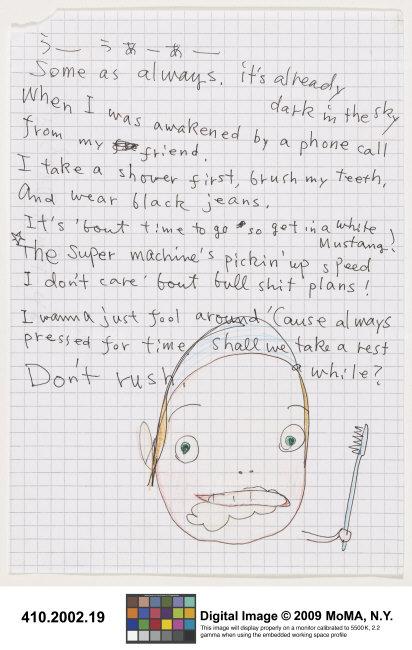 うー うぁーあー
Some as always. it's already
dark in the sky
When I was awakened by a phone call
from my friend.
I take a shover first, brush my teeth,
And wear black jeans.
It's 'bout time to go so get in a white
Mustang!
☆The Super machine's pickin' up speed
I don't care 'bout bull shit plans!
I wanna just fool around 'Cause always
pressed for time shall we take a rest
a while?
Don't rush.
410.2002.19
Digital Image © 2009 MoMA, N.Y.
This image will display properly on a monitor calibrated to 5500K, 2.2
gamma when using the embedded working space profile